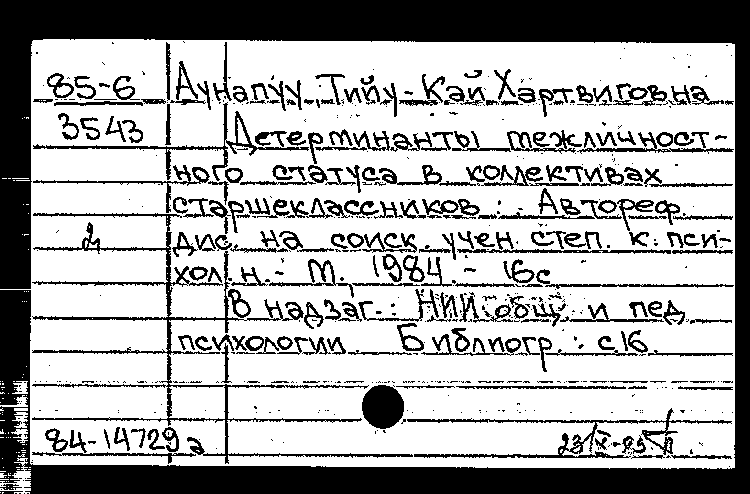 85-6 Аунапуу, Тийу-Кай Хартвиговна
3543 Детерминанты межличност-
ного статуса в коллективах
старшеклассников : Автореф.
дис. на соиск. учен. степ. к. пси-
хол. н. - М., 1984. - 16с
В надзаг.: НИИ общ. и пед.
психологии. Библиогр.: с.16.
84-14729а